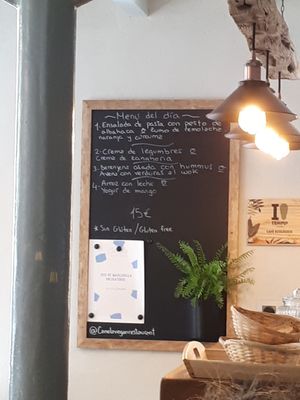 Menú del día
1. Ensalada de pasta con pesto de
albahaca o zumo de remolacha
naranja y
2. Crema de legumbres o
Crema de zanahoria
3. Berenjena asada con hummus o
Avena con verduras al wok
4. Arroz con leche o
Yogur de mango
15€
* Sin Gluten/Gluten free
@Canelaveganrestaurant
I